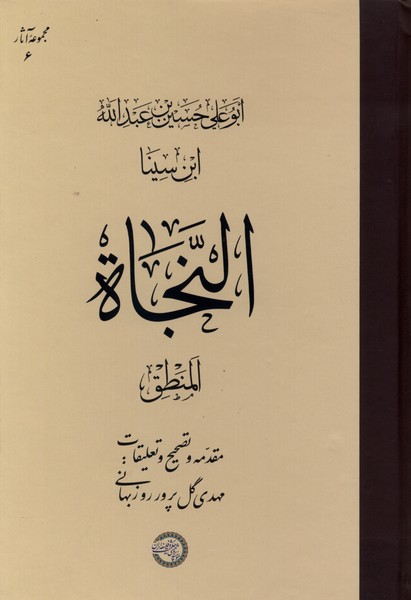 مجموعهٔ آثار
۶
أبو علي حُسين بن عبد الله
ابن سینا
النَّجاة
المَنطِق
مقدّمه و تصحیح و تعلیقات:
مهدی گل پرور روزبهانی